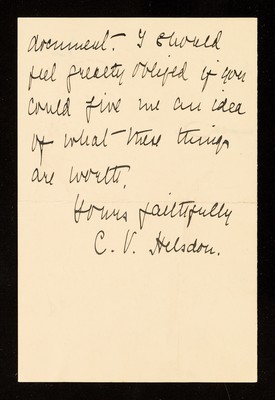 document. I should
feel greatly obliged if you
could give me an idea
of what these things
are worth.
Yours faithfully
C. V. Helsdon.